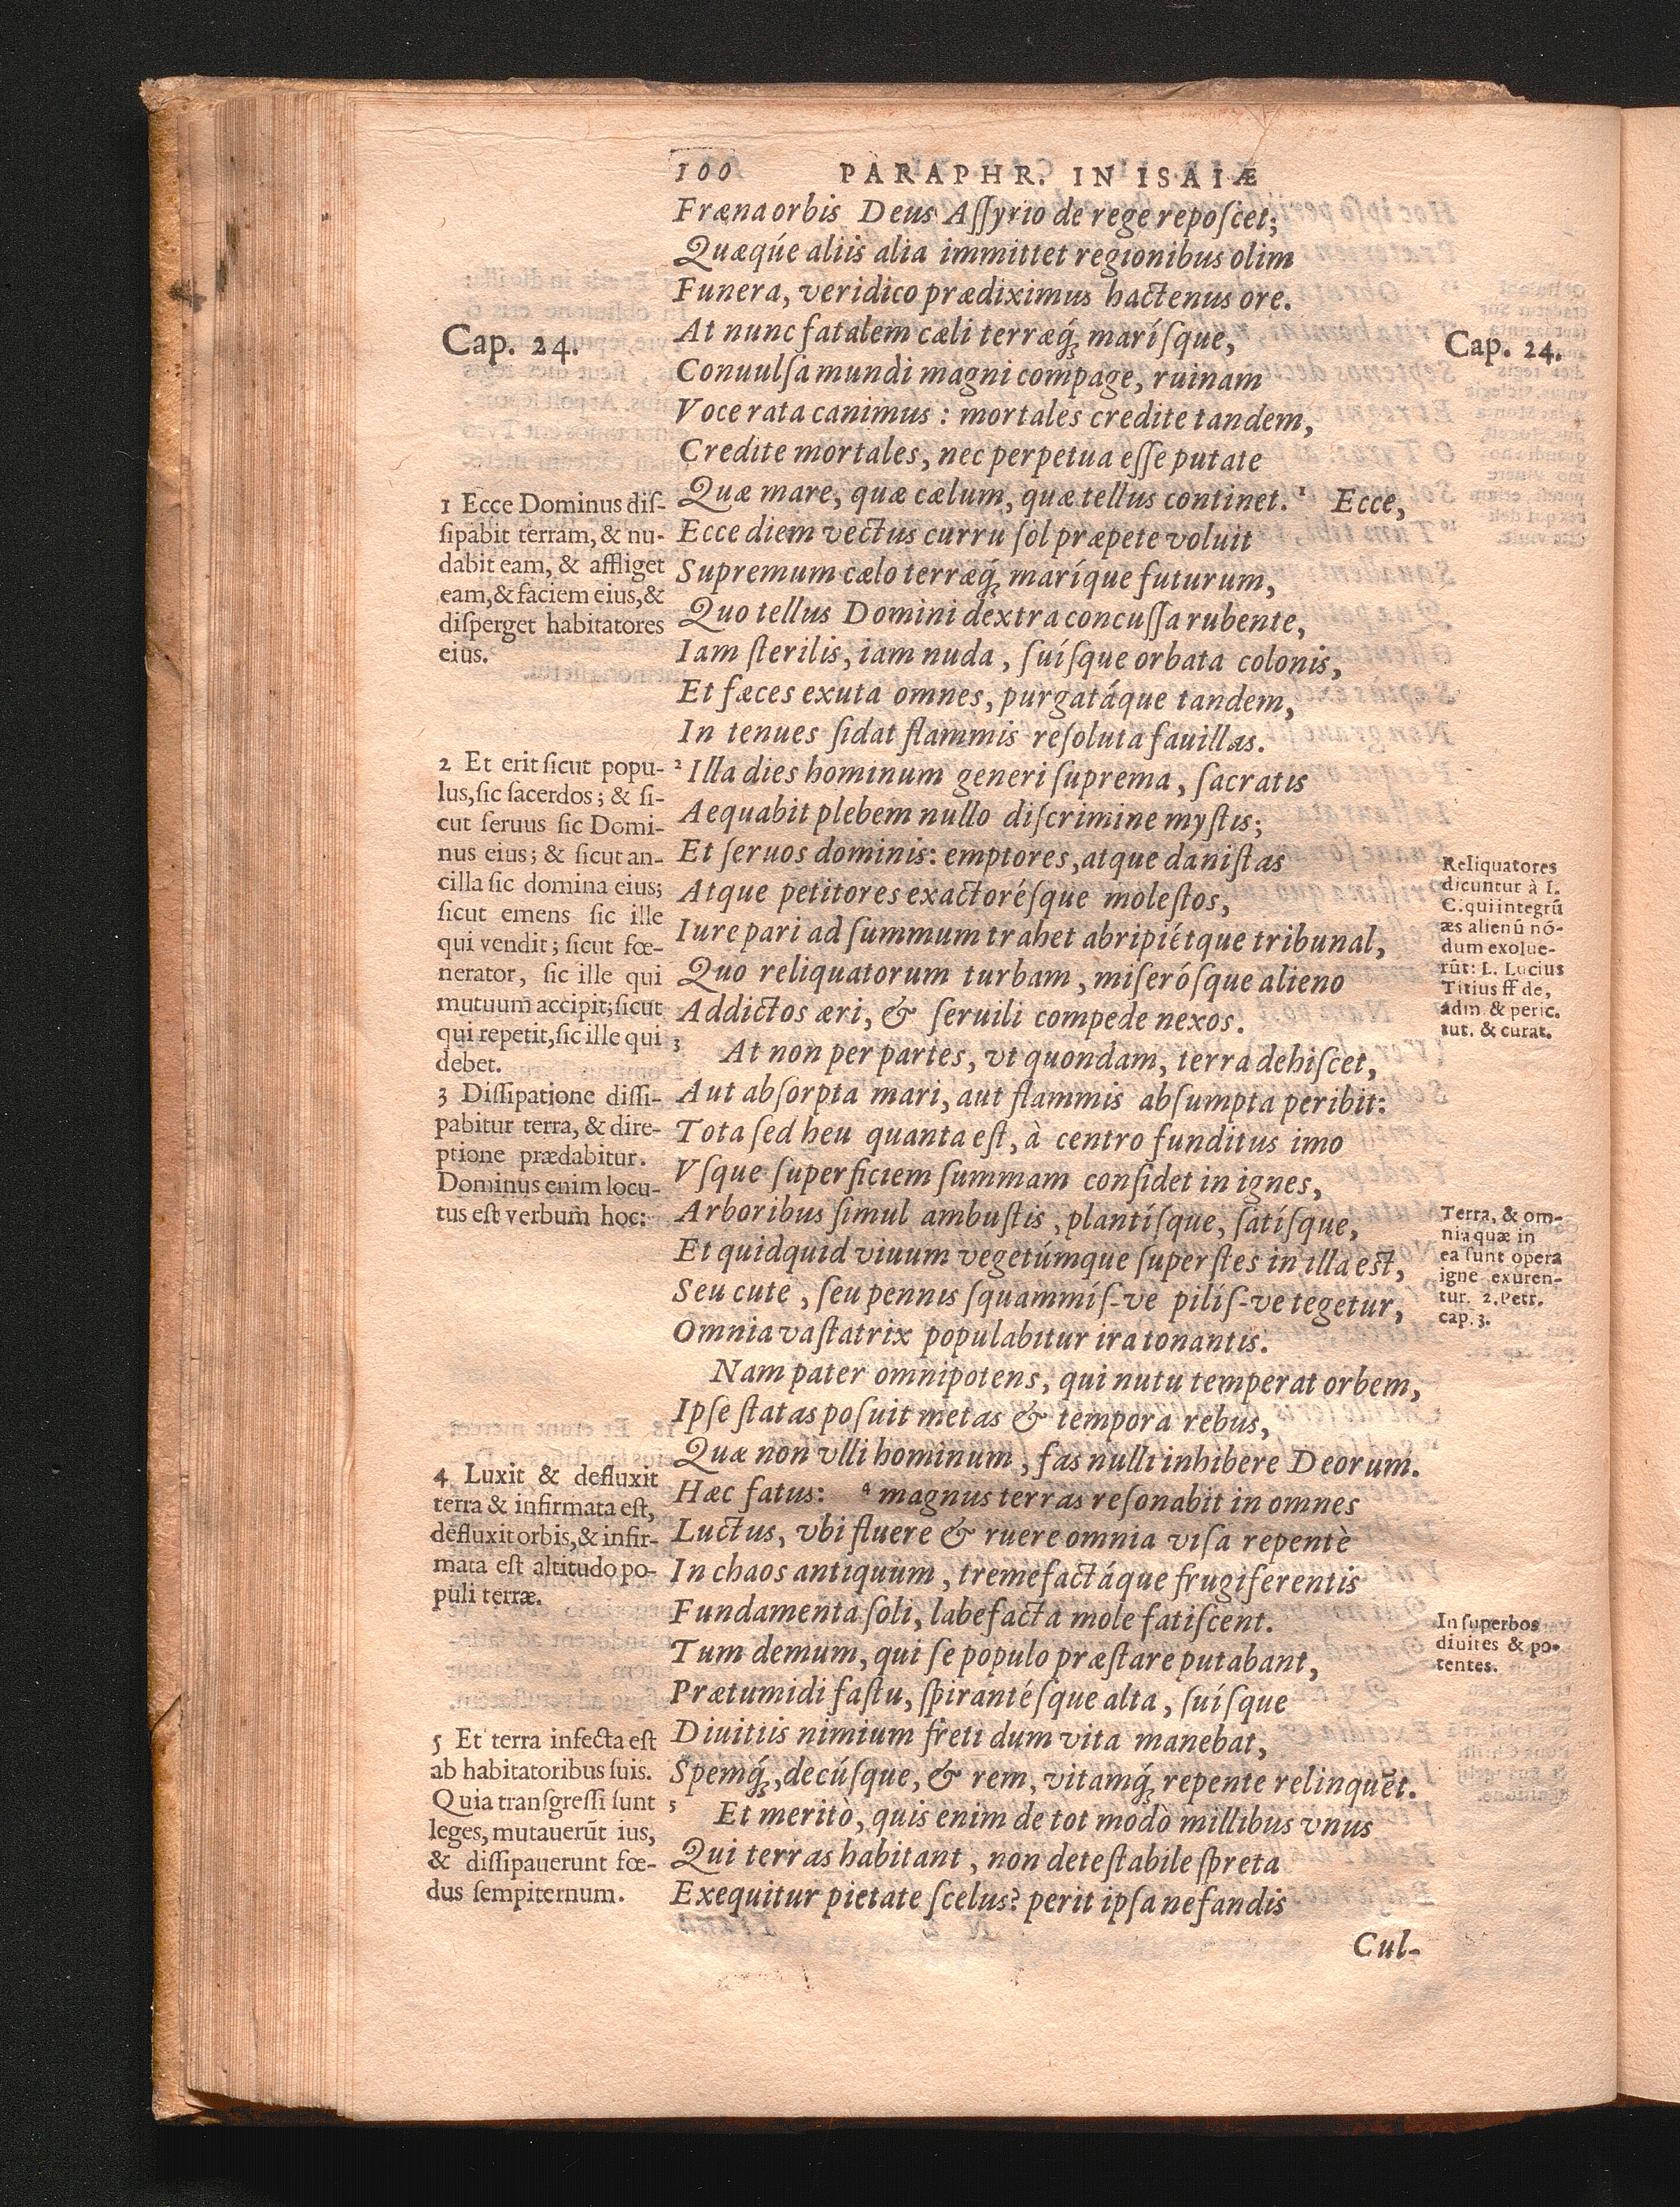 100 PARAPHR. IN ISAIÆ
Fræna orbis Deus Aſſyrio de rege repoſcet;
Quæqúe aliis alia immittet regionibus olim
Funera, veridico prædiximus hactenus ore.
Cap. 24.
At nunc fatalem cæli terræq́ꝫ maríſque,
Conuulſa mundi magni compage, ruinam
Voce rata canimus: mortales credite tandem,
Credite mortales, nec perpetua eſſe putate
Quæ mare, quæ cælum, quæ tellus continet. 1 Ecce,
Ecce diem vectus curru ſol præpete voluit
Supremum cælo terræq́ꝫ maríque futurum,
Quo tellus Domini dextra concuſſa rubente,
Iam ſterilis, iam nuda, ſuíſque orbata colonis,
Et fæces exuta omnes, purgatáque tandem,
In tenues ſidat flammis reſoluta fauillas.
2 Illa dies hominum generi ſuprema, ſacratis
Aequabit plebem nullo diſcrimine myſtis;
Et ſeruos dominis: emptores, atque daniſtas
Atque petitores exactoréſque moleſtos,
Iure pari ad ſummum trahet abripiétque tribunal,
Quo reliquatorum turbam, miſeróſque alieno
Addictos æri, & ſeruili compede nexos.
3 At non per partes, vt quondam, terra dehiſcet,
Aut abſorpta mari, aut flammis abſumpta peribit:
Tota ſed heu quanta eſt, à centro funditus imo
Vſque ſuperficiem ſummam conſidet in ignes,
Arboribus ſimul ambuſtis, plantíſque, ſatíſque,
Et quidquid viuum vegetúmque ſuperſtes in illa eſt,
Seu cute, ſeu pennis ſquammíſ-ve pilíſ-ve tegetur,
Omnia vaſtatrix populabitur ira tonantis.
Nam pater omnipotens, qui nutu temperat orbem,
Ipſe ſtatas poſuit metas & tempora rebus,
Quæ non vlli hominum, fas nulli inhibere Deorum.
Hæc fatus: 4 magnus terras reſonabit in omnes
Luctus, vbi fluere & ruere omnia viſa repentè
In chaos antiquum, tremefactáque frugiferentis
Fundamenta ſoli, labefacta mole fatiſcent.
Tum demum, qui ſe populo præſtare putabant,
Prætumidi faſtu, ſpirantéſque alta, ſuíſque
Diuitiis nimium freti dum vita manebat,
Spemq́ꝫ, decúſque, & rem, vitamq́ꝫ repente relinquẽt.
5 Et meritò, quis enim de tot modò millibus vnus
Qui terras habitant, non deteſtabile ſpreta
Exequitur pietate ſcelus? perit ipſa nefandis
Cul-
1 Ecce Dominus diſ-
ſipabit terram, & nu-
dabit eam, & affliget
eam, & faciem eius, &
diſperget habitatores
eius.
2 Et erit ſicut popu-
lus, ſic ſacerdos; & ſi-
cut ſeruus ſic Domi-
nus eius; & ſicut an-
cilla ſic domina eius;
ſicut emens ſic ille
qui vendit; ſicut fœ-
nerator, ſic ille qui
mutuum accipit; ſicut
qui repetit, ſic ille qui
debet.
3 Diſſipatione diſſi-
pabitur terra, & dire-
ptione prædabitur.
Dominus enim locu-
tus eſt verbum hoc:
4 Luxit & defluxit
terra & infirmata eſt,
defluxit orbis, & infir-
mata eſt altitudo po-
puli terræ.
5 Et terra infecta eſt
ab habitatoribus ſuis.
Quia tranſgreſſi ſunt
leges, mutauerũt ius,
& diſſipauerunt fœ-
dus ſempiternum.
Cap. 24.
Reliquatores
dicuntur à I.
C. qui integrũ
æs alienũ nõ-
dum exolue-
rũt: L. Lucius
Titius ff de,
adm & peric.
tut. & curat.
Terra, & om-
nia quæ in
ea ſunt opera
igne exuren-
tur. 2. Petr.
cap. 3.
In ſuperbos
diuites & po-
tentes.